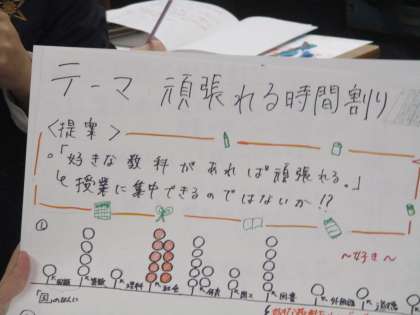 テーマ 頑張れる時間割り
〈提案〉
。「好きな教科があれば頑張れる。」
と授業に集中できるのではないか!?
①
~好き~
国語 算数 理科 社会 体育 図工 図書 外国語 道徳